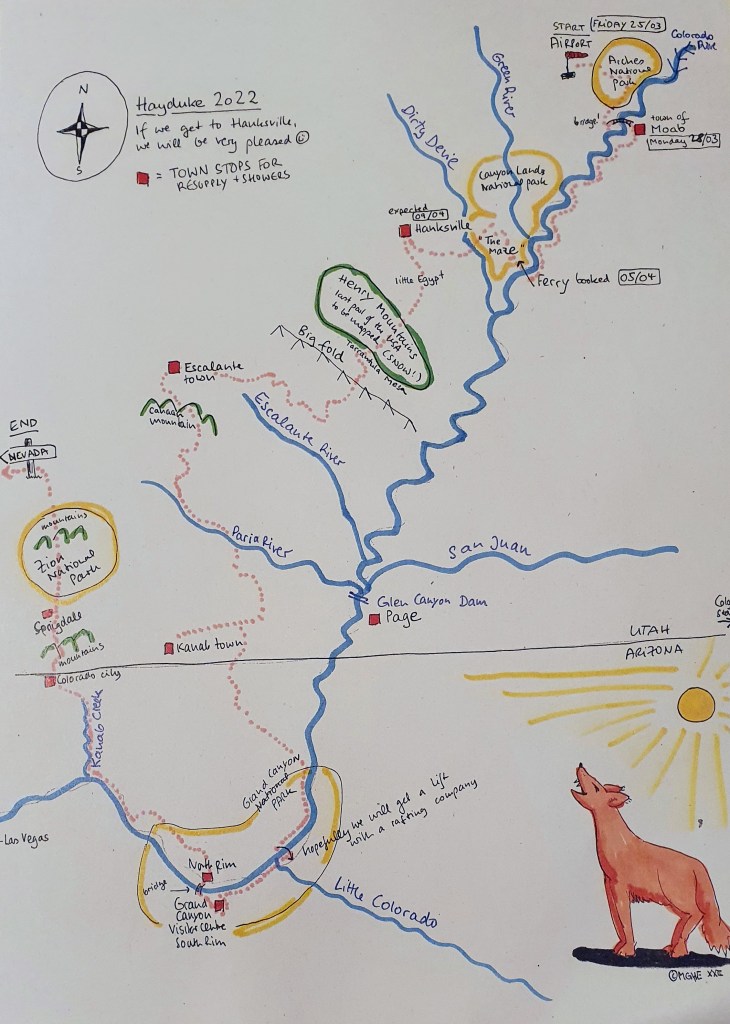 START
FRIDAY 25/03
AIRPORT
Colorado
Arches
National
Park
bridge!
town of
Moab
Monday 28/03
N
S
Hayduke 2022
If we get to Hanksville,
we will be very pleased
= TOWN STOPS FOR
RESUPPLY + SHOWERS
Green River
Dirty Devil
Canyon Lands
National park
expected
09/04
Hanksville
"The
Maze"
Ferry booked 05/04
little Egypt
Henry Mountains
last part of the USA
to be mapped (SNOW!)
Tarrantula Mesa
Big fold
Escalante
town
canaan
mountain
Escalante River
END
NEVADA
mountains
Zion
National
Park
Paria River
San Juan
Glen Canyon Dam
Page
Springdale
mountains
Kanab town
UTAH
ARIZONA
Colorado city
Kanab Creek
Grand Canyon
National
PARK
hopefully we will get a lift
with a rafting company
-Las Vegas
North Rim
bridge
Grand
Canyon
Visitor Centre
South Rim
Little Colorado